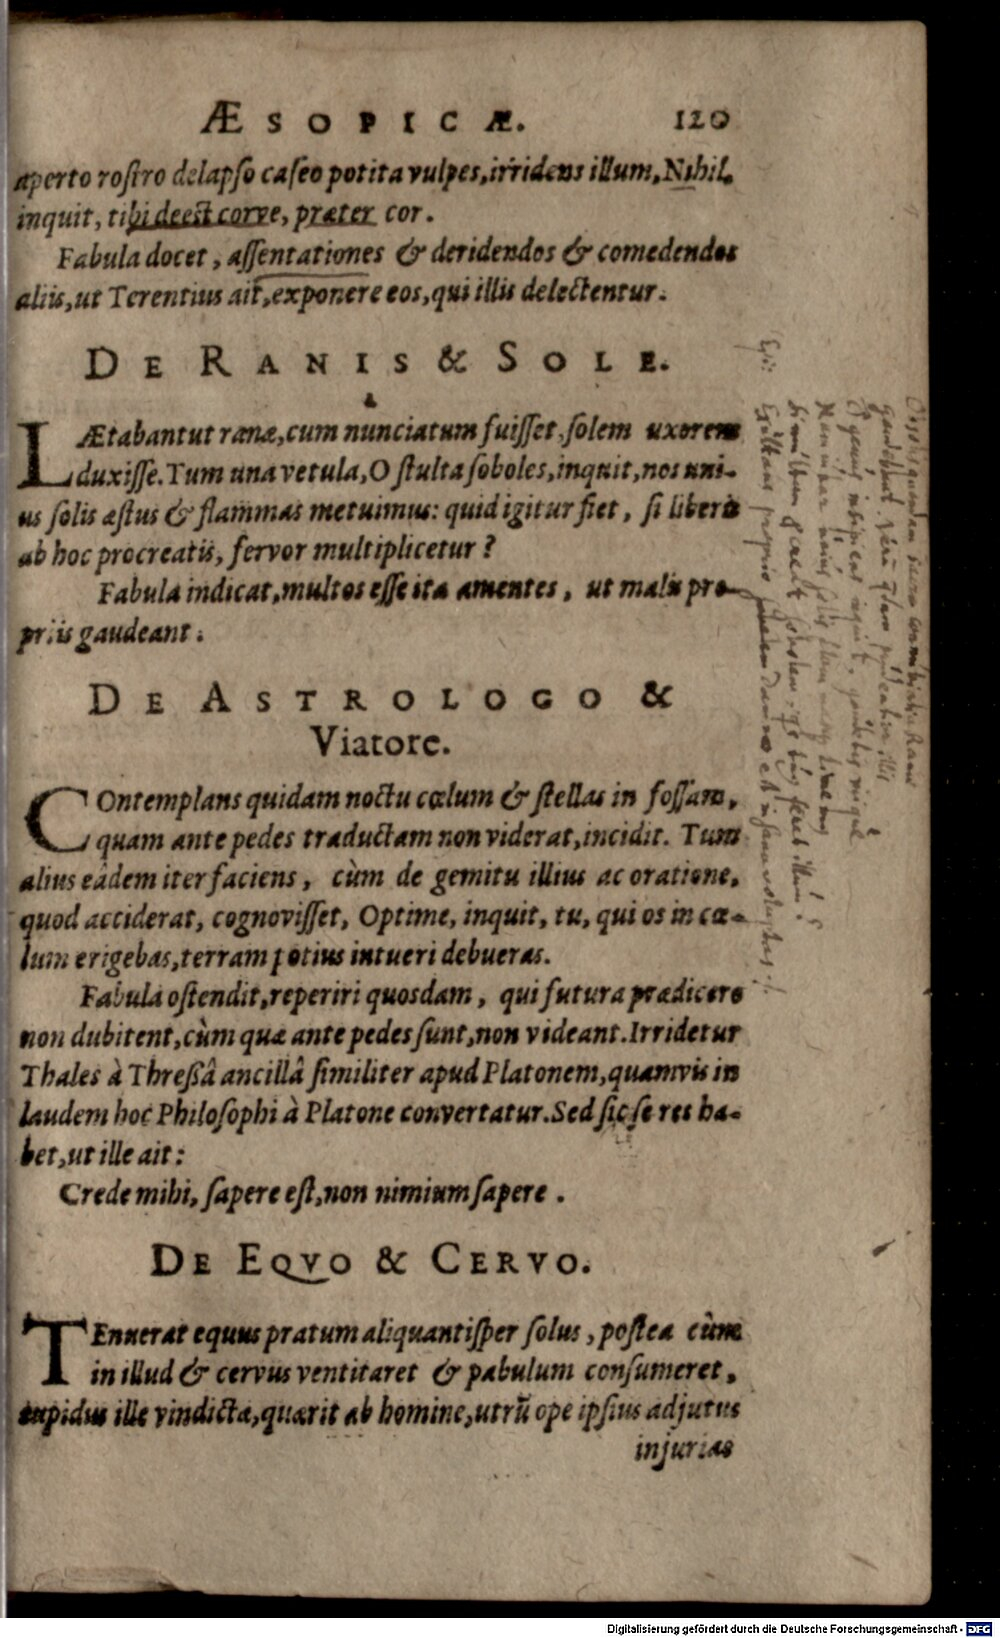 ÆSOPICÆ. 120
aperto rostro delapso caseo potita vulpes, irridens illum, Nihil,
inquit, tibi deest corve, præter cor.
Fabula docet, assentationes & deridendos & comedendos
aliis, ut Terentius ait, exponere eos, qui illis delectentur.
DE RANIS & SOLE.
LÆtabantut ranæ, cum nunciatum fuisset, solem uxorem
duxisse. Tum una vetula, O stulta soboles, inquit, nos uni-
us solis æstus & flammas metuimus: quid igitur fiet, si liberis
ab hoc procreatis, fervor multiplicetur?
Fabula indicat, multos esse ita amentes, ut malis pro-
priis gaudeant.
DE ASTROLOGO &
Viatore.
COntemplans quidam noctu cœlum & stellas in fossam,
quam ante pedes traductam non viderat, incidit. Tum
alius eâdem iter faciens, cùm de gemitu illius ac oratione,
quod acciderat, cognovisset, Optime, inquit, tu, qui os in cœ-
lum erigebas, terram potius intueri debueras.
Fabula ostendit, reperiri quosdam, qui futura prædicere
non dubitent, cùm quæ ante pedes sunt, non videant. Irridetur
Thales à Thressâ ancillâ similiter apud Platonem, quamvis in
laudem hoc Philosophi à Platone convertatur. Sed sic se res ha-
bet, ut ille ait:
Crede mihi, sapere est, non nimium sapere.
DE EQVO & CERVO.
TEnuerat equus pratum aliquantisper solus, postea cùm
in illud & cervus ventitaret & pabulum consumeret,
cupidus ille vindictæ, quærit ab homine, utrū ope ipsius adjutus
injurias
Digitalisierung gefördert durch die Deutsche Forschungsgemeinschaft - DFG